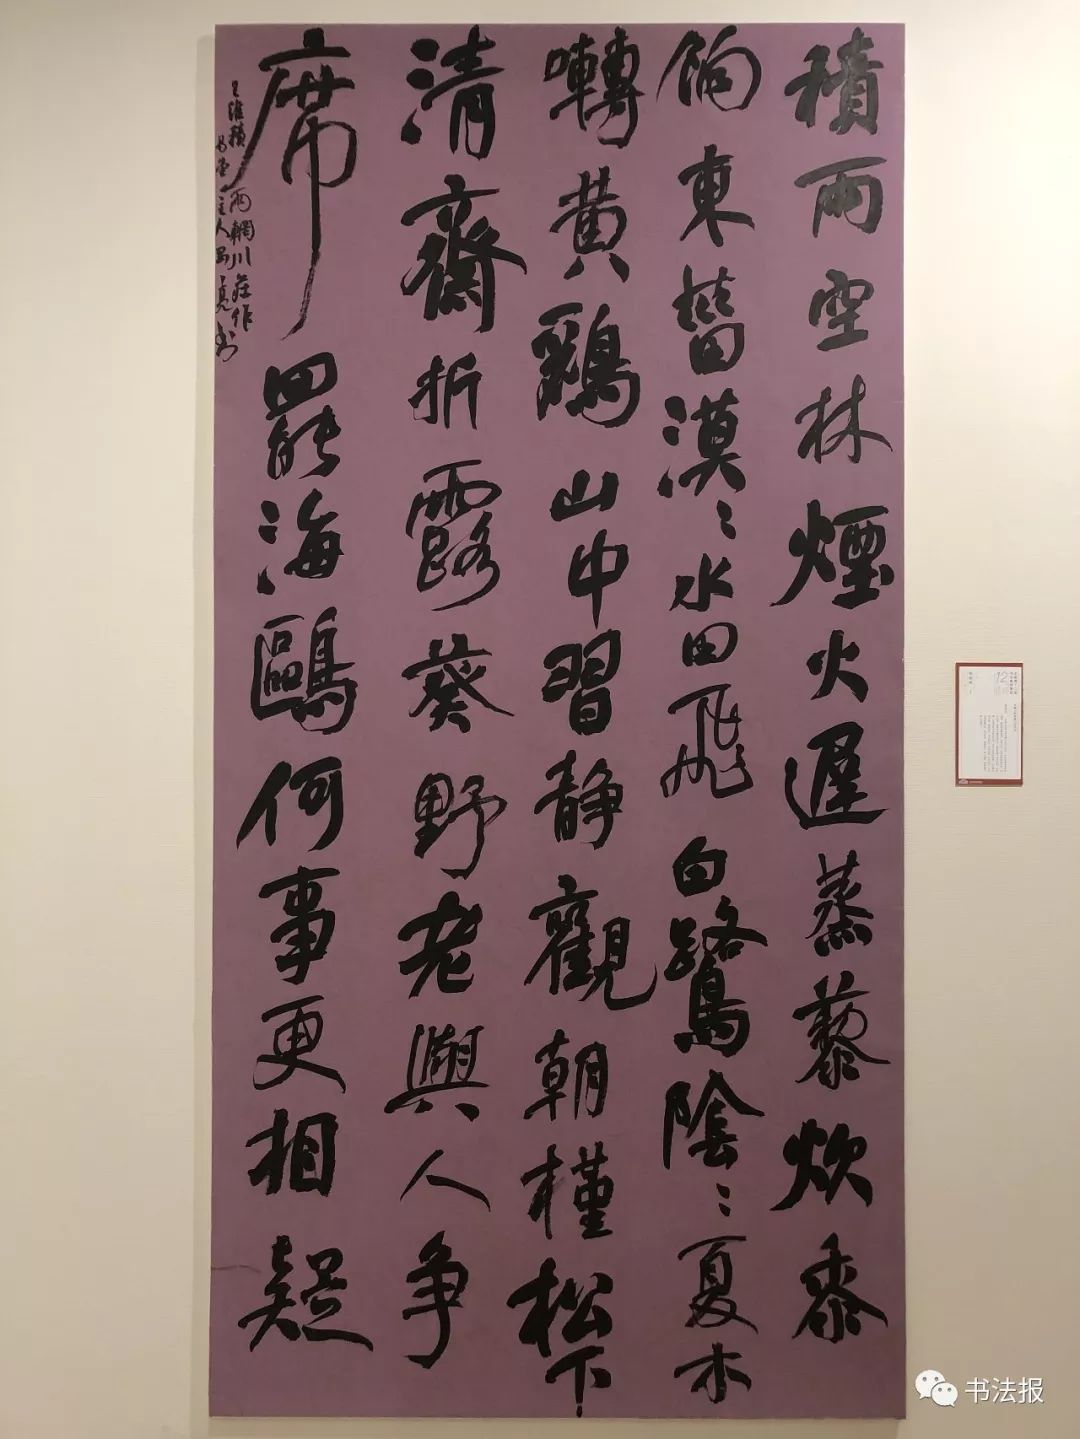 積雨空林煙火遲蒸藜炊黍
餉東菑漠〻水田飛白鷺陰〻夏木
囀黃鸝山中習靜觀朝槿松下
清齋折露葵野老與人爭
席罷海鷗何事更相疑
王維積雨輞川莊作
書法报